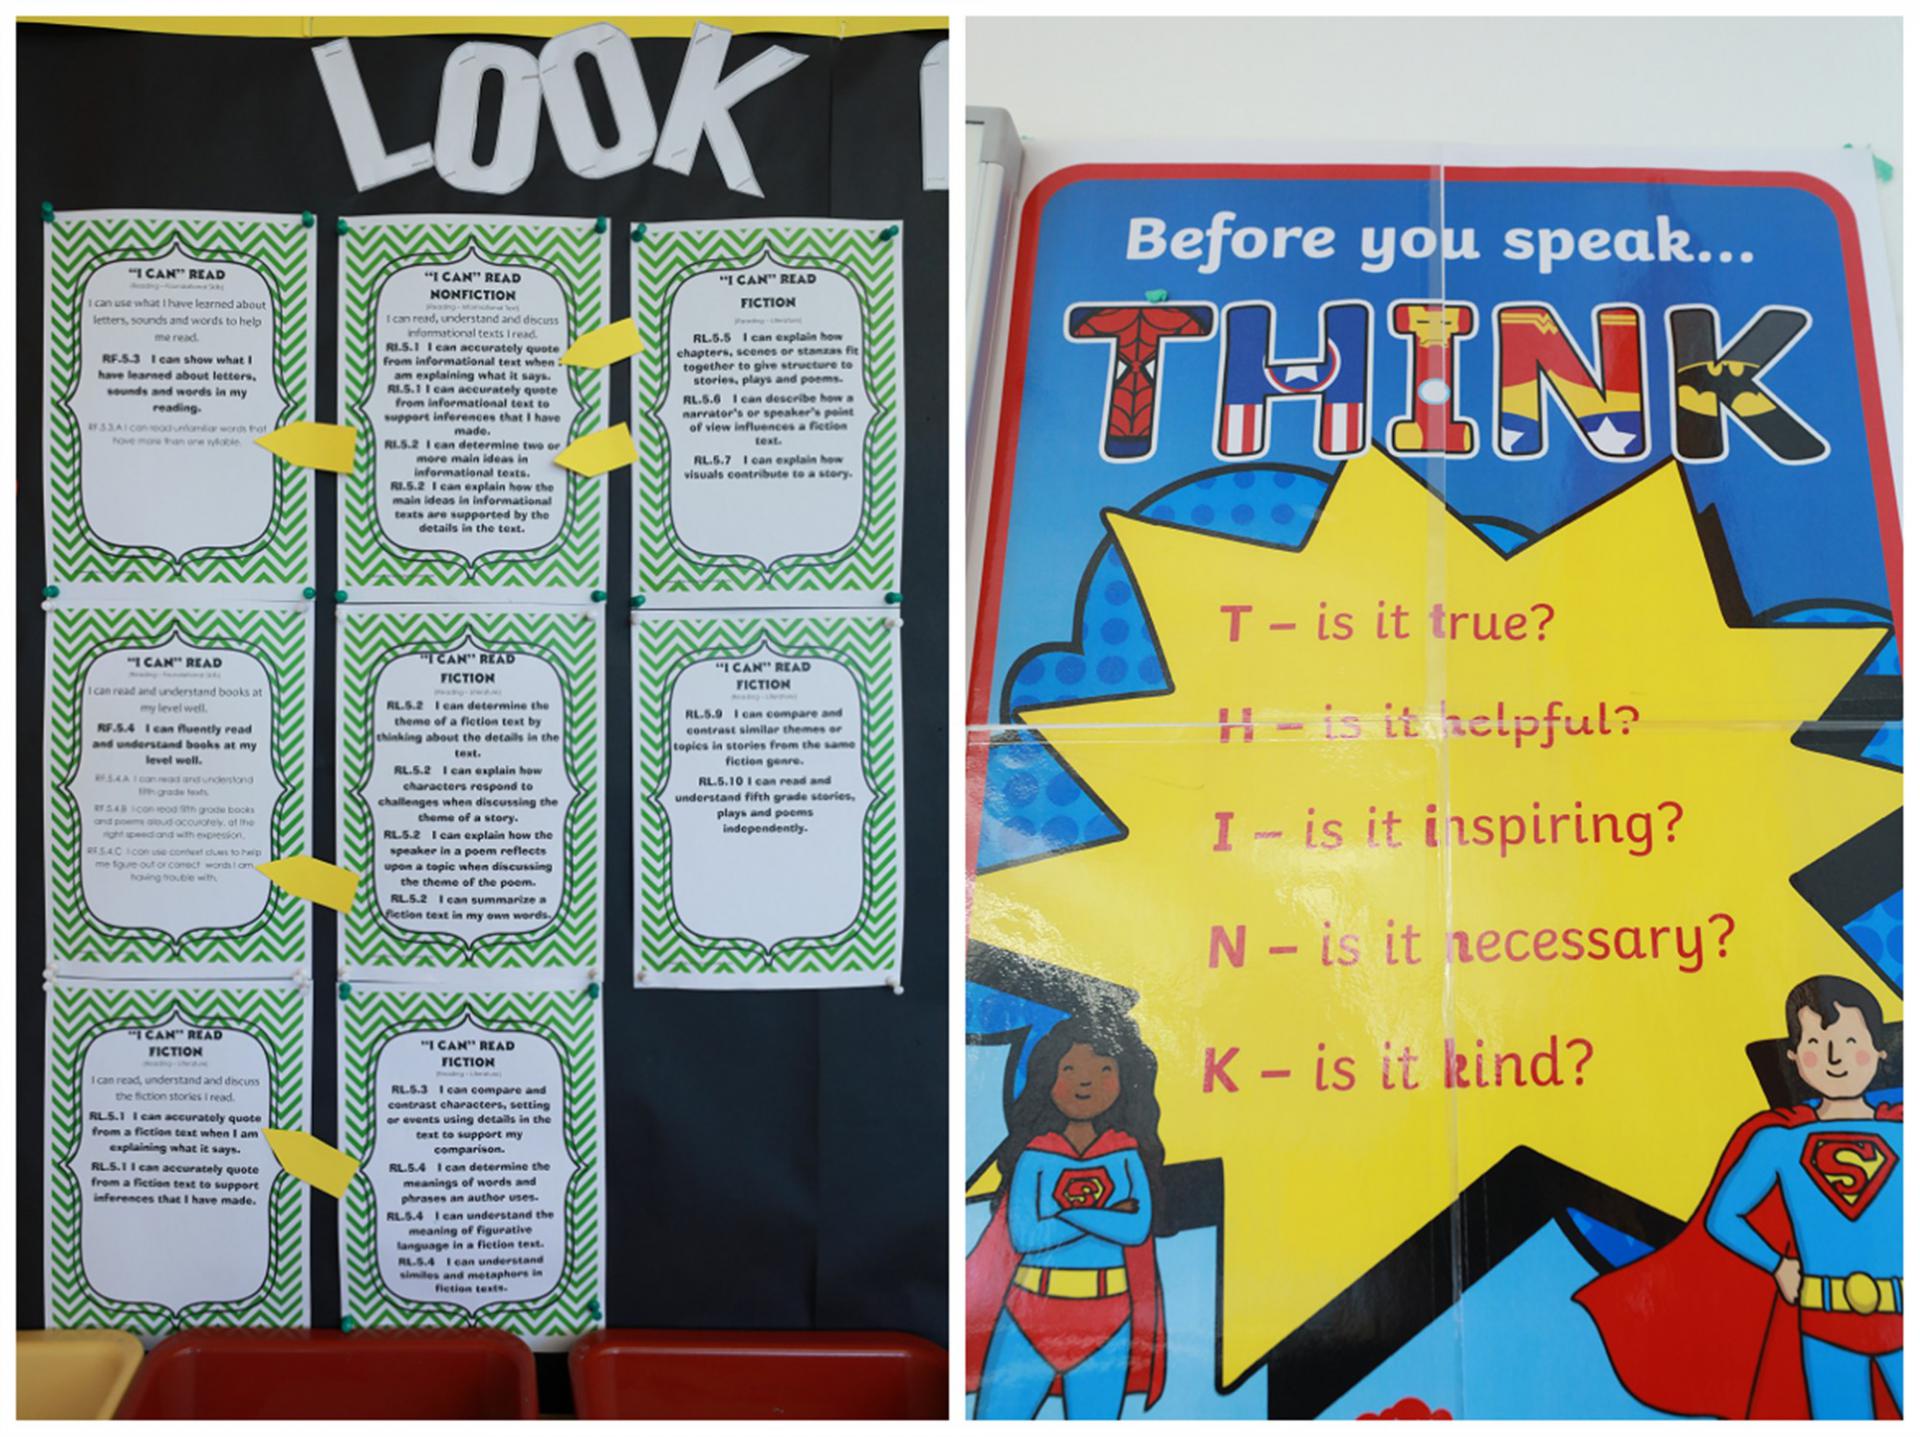 LOOK
"I CAN" READ
(Reading - Foundational Skills)
I can use what I have learned about
letters, sounds and words to help
me read.
RF.5.3 I can show what I
have learned about letters,
sounds and words in my
reading.
RF.5.3.A I can read unfamiliar words that
have more than one syllable.
"I CAN" READ
NONFICTION
(Reading - Informational Text)
I can read, understand and discuss
informational texts I read.
RI.5.1 I can accurately quote
from informational text when
am explaining what it says.
RI.5.1 I can accurately quote
from informational text to
support inferences that I have
made.
RI.5.2 I can determine two or
more main ideas in
informational texts.
RI.5.2 I can explain how the
main ideas in informational
texts are supported by the
details in the text.
"I CAN" READ
FICTION
(Reading - Literature)
RL.5.5 I can explain how
chapters, scenes or stanzas fit
together to give structure to
stories, plays and poems.
RL.5.6 I can describe how a
narrator's or speaker's point
of view influences a fiction
text.
RL.5.7 I can explain how
visuals contribute to a story.
"I CAN" READ
(Reading - Foundational Skills)
I can read and understand books at
my level well.
RF.5.4 I can fluently read
and understand books at my
level well.
RF.5.4.A I can read and understand
fifth grade texts.
RF.5.4.B I can read fifth grade books
and poems aloud accurately, at the
right speed and with expression.
RF.5.4.C I can use context clues to help
me figure out or correct words I am
having trouble with.
"I CAN" READ
FICTION
(Reading - Literature)
RL.5.2 I can determine the
theme of a fiction text by
thinking about the details in the
text.
RL.5.2 I can explain how
characters respond to
challenges when discussing the
theme of a story.
RL.5.2 I can explain how the
speaker in a poem reflects
upon a topic when discussing
the theme of the poem.
RL.5.2 I can summarize a
fiction text in my own words.
"I CAN" READ
FICTION
(Reading - Literature)
RL.5.9 I can compare and
contrast similar themes or
topics in stories from the same
fiction genre.
RL.5.10 I can read and
understand fifth grade stories,
plays and poems
independently.
"I CAN" READ
FICTION
(Reading - Literature)
I can read, understand and discuss
the fiction stories I read.
RL.5.1 I can accurately quote
from a fiction text when I am
explaining what it says.
RL.5.1 I can accurately quote
from a fiction text to support
inferences that I have made.
"I CAN" READ
FICTION
(Reading - Literature)
RL.5.3 I can compare and
contrast characters, setting
or events using details in the
text to support my
comparison.
RL.5.4 I can determine the
meanings of words and
phrases an author uses.
RL.5.4 I can understand the
meaning of figurative
language in a fiction text.
RL.5.4 I can understand
similes and metaphors in
fiction texts.
Before you speak...
THINK
T – is it true?
H – is it helpful?
I – is it inspiring?
N – is it necessary?
K – is it kind?
S
S